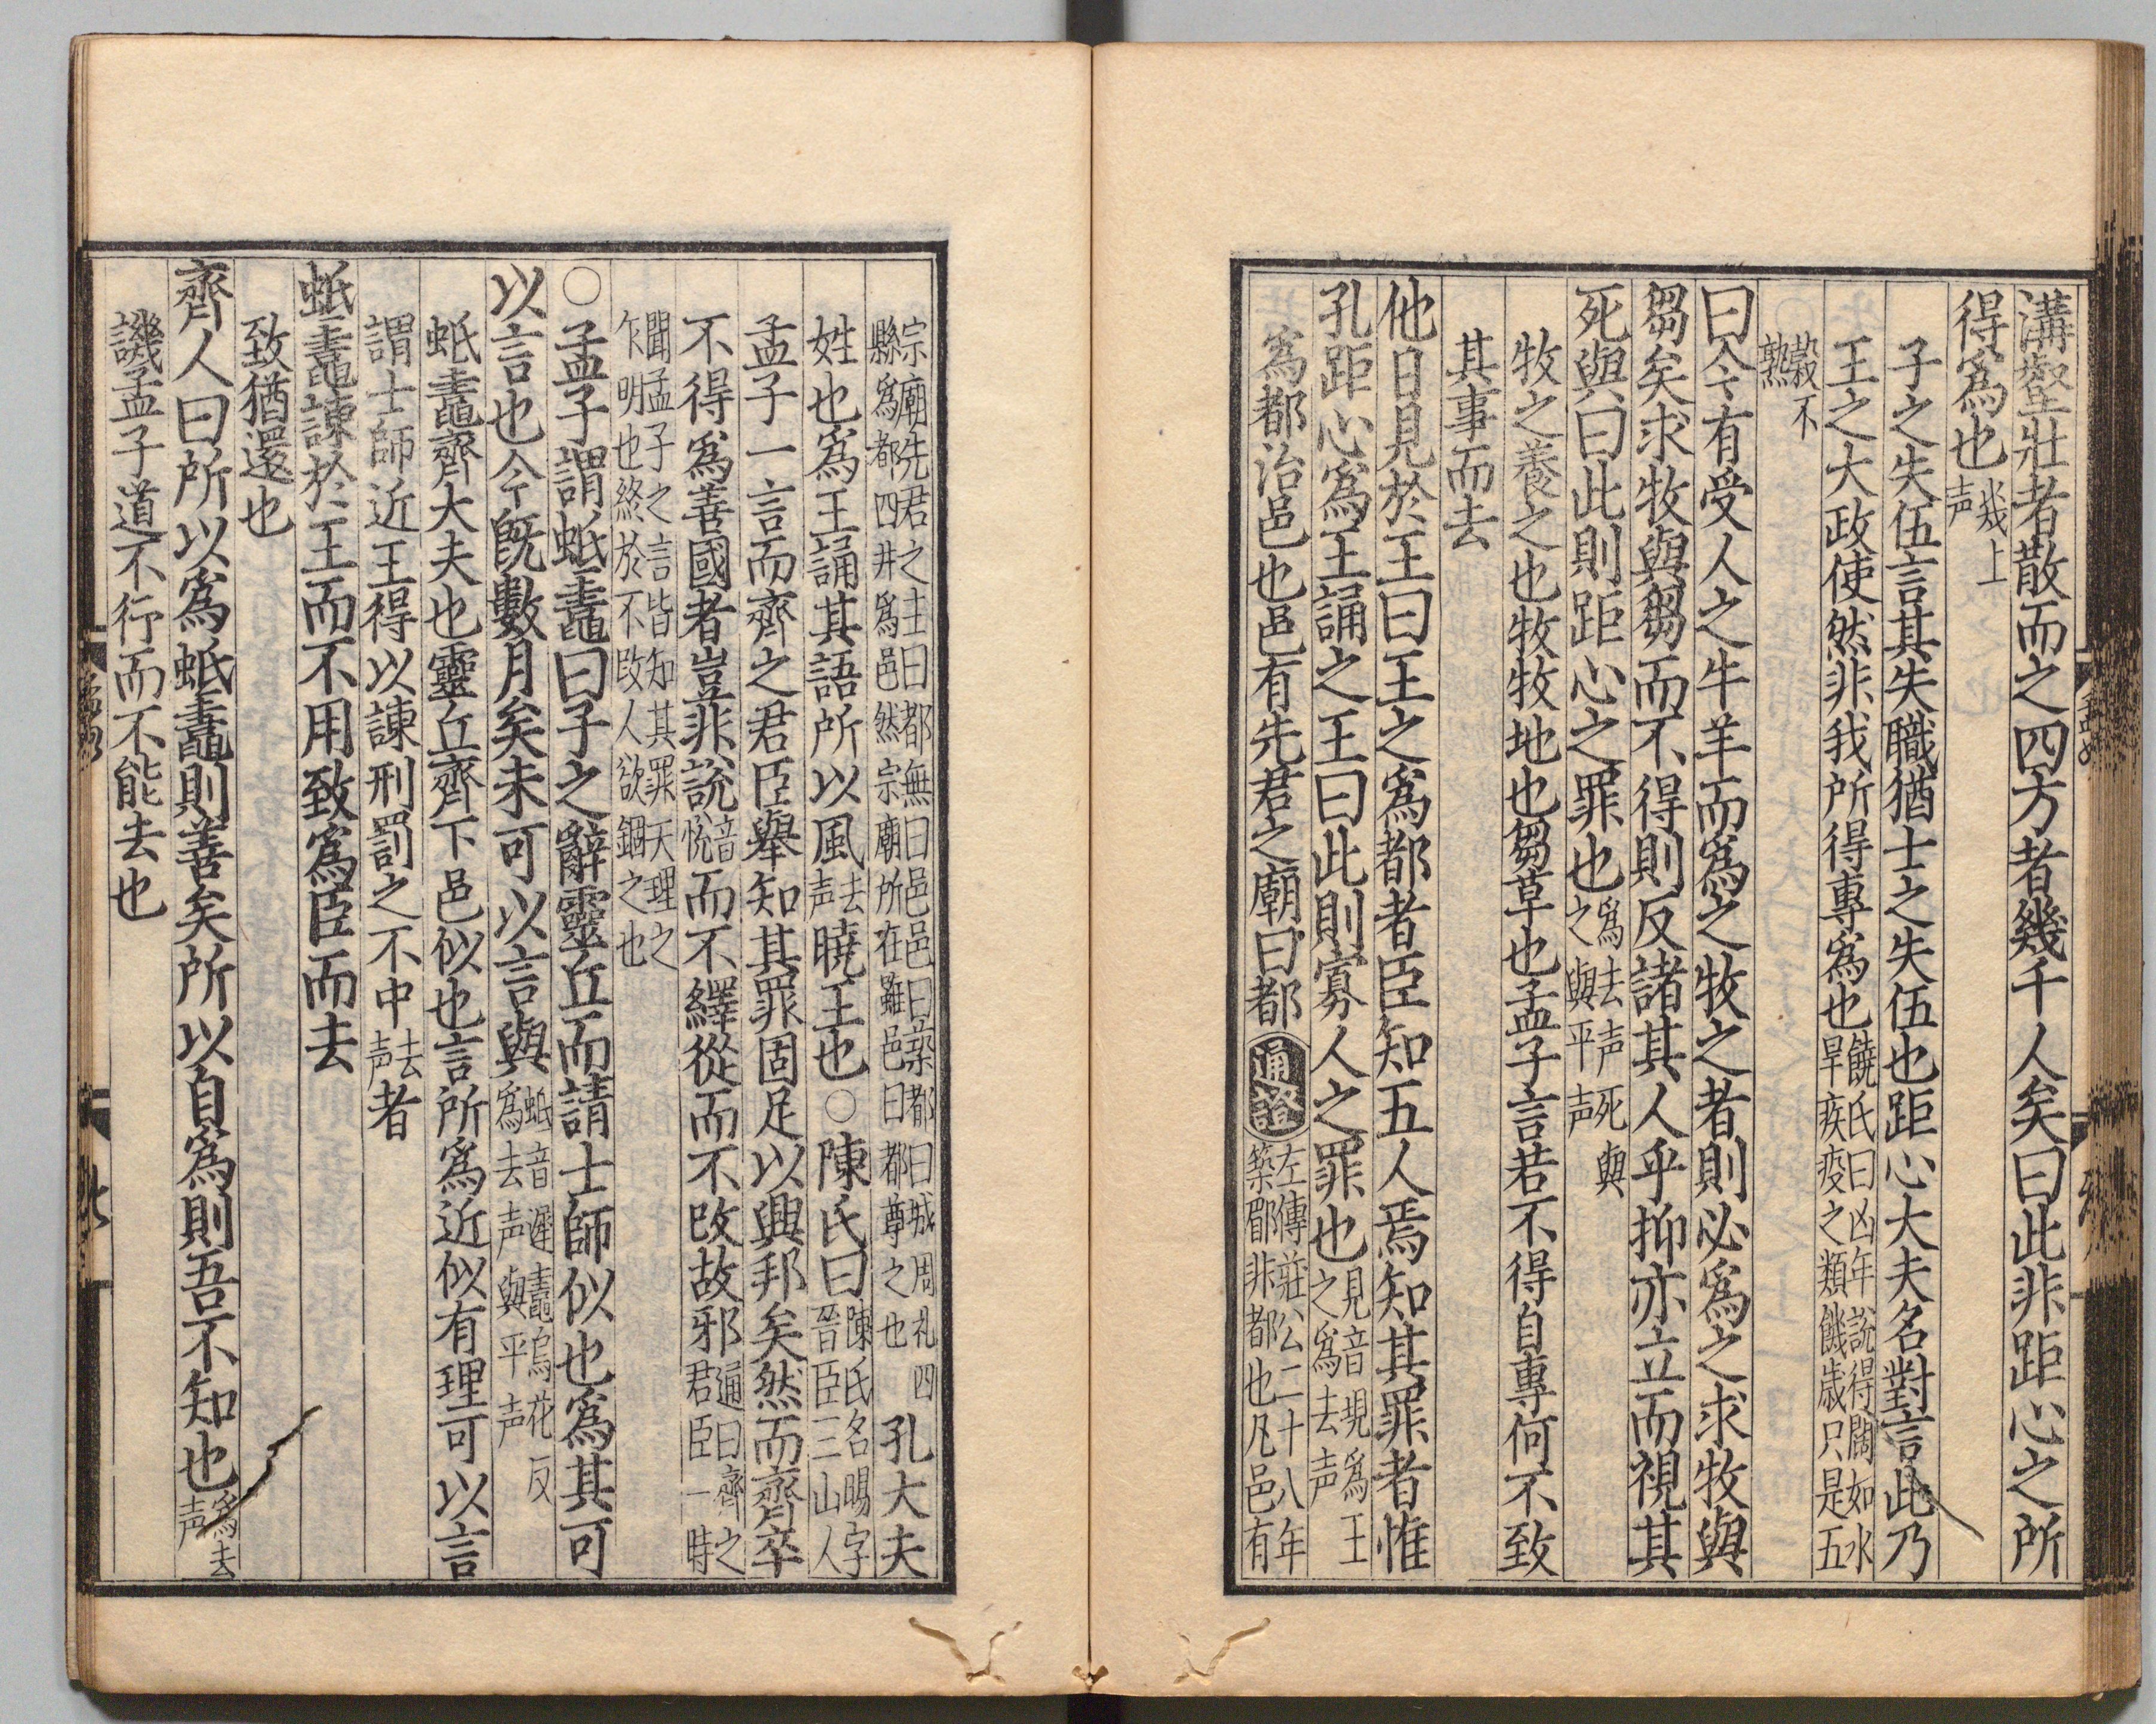 溝壑壯者散而之四方者幾千人矣曰此非距心之所
得爲也幾上声
子之失伍言其失職猶士之失伍也距心大夫名對言此乃
王之大政使然非我所得專爲也饒氏曰凶年説得闊如水旱疾疫之類饑歳只是五
穀不熟
曰今有受人之牛羊而爲之牧之者則必爲之求牧與
芻矣求牧與芻而不得則反諸其人乎抑亦立而視其
死與曰此則距心之罪也爲去声死與之與平声
牧之養之也牧牧地也芻草也孟子言若不得自專何不致
其事而去
他日見於王曰王之爲都者臣知五人焉知其罪者惟
孔距心爲王誦之王曰此則寡人之罪也見音現爲王之爲去声
爲都治邑也邑有先君之廟曰都通證左傳莊公二十八年築郿非都也凡邑有
宗廟先君之主曰都無曰邑邑曰築都曰城周礼四縣爲都四井爲邑然宗廟所在雖邑曰都尊之也孔大夫
姓也爲王誦其語所以風去声曉王也○陳氏曰陳氏名暘字晉臣三山人
孟子一言而齊之君臣舉知其罪固足以興邦矣然而齊卒
不得爲善國者豈非説音悅而不繹從而不改故邪通曰齊之君臣一時
聞孟子之言皆知其罪天理之乍明也終於不改人欲錮之也
○孟子謂蚳鼃曰子之辭靈丘而請士師似也爲其可
以言也今既數月矣未可以言與蚳音遲鼃烏花反爲去声與平声
蚳鼃齊大夫也靈丘齊下邑似也言所爲近似有理可以言
謂士師近王得以諫刑罰之不中去声者
蚳鼃諫於王而不用致爲臣而去
致猶還也
齊人曰所以爲蚳鼃則善矣所以自爲則吾不知也爲去声
譏孟子道不行而不能去也